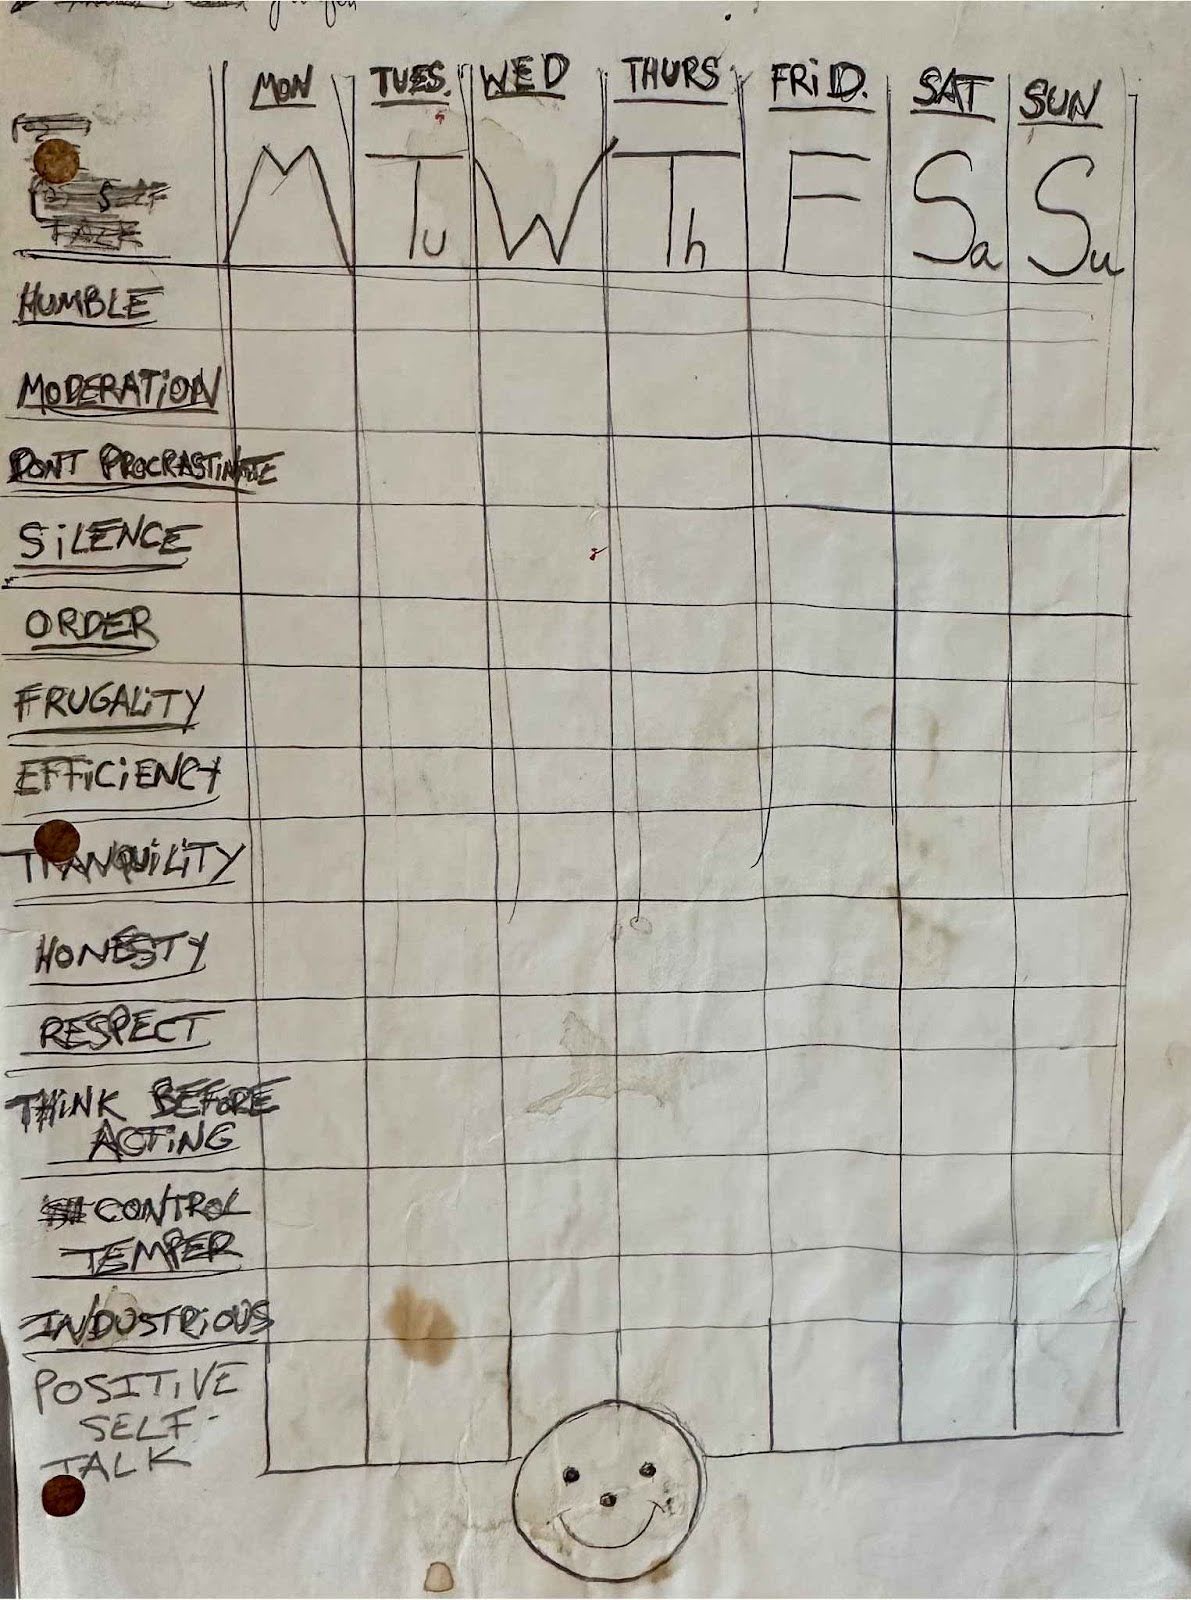 MON TUES. WED THURS FRiD. SAT SUN
M Tu W Th F Sa Su
SELF
TALK
HUMBLE
MODERATiON
DONT PROCRASTINATE
SiLENCE
ORDER
FRUGALiTY
EFFiCiENCY
TRANQUiLiTY
HONESTY
RESPECT
THiNK BEFORE
ACTiNG
CONTROL
TEMPER
INDUSTRiOUS
POSITiVE
SELF-
TALK